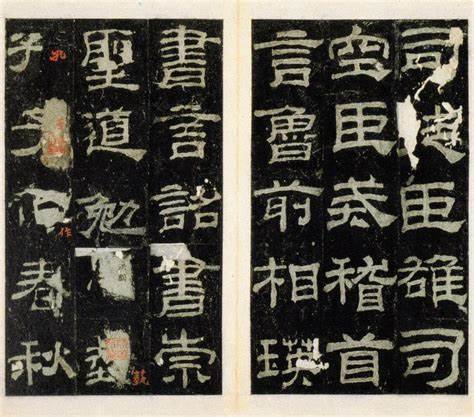 司徒臣雄司
空臣戒稽首
言魯前相瑛
書言詔書崇
聖道勉藝
孔作春秋